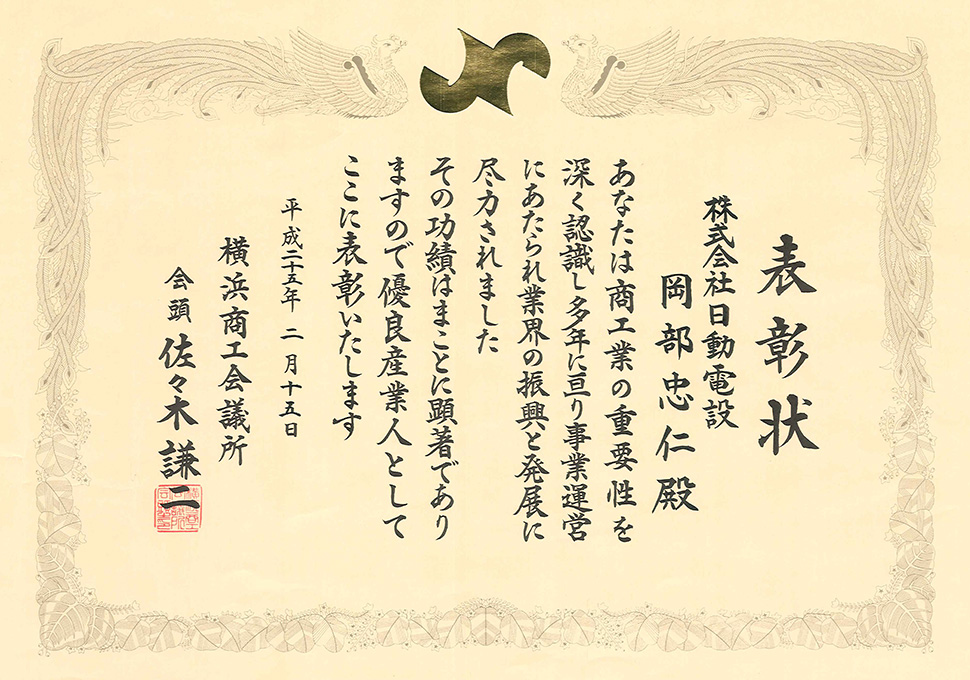 表彰状
株式会社日動電設
岡部忠仁殿
あなたは商工業の重要性を
深く認識し多年に亘り事業運営
にあたられ業界の振興と発展に
尽力されました
その功績はまことに顕著であり
ますので優良産業人として
ここに表彰いたします
平成二十五年 二月十五日
横浜商工会議所
会頭 佐々木謙二